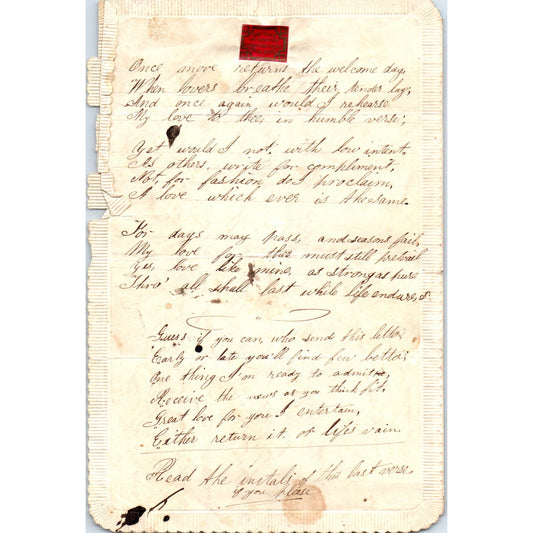 Once more returns the welcome day,
When lovers breathe their tender lay,
And once again would I rehearse
My love to thee, in humble verse;
Yet would I not with low intent.
As others, write for compliment,
Not for fashion do I proclaim,
A love which ever is the same.
For days may pass, and seasons fail,
My love for thee must still prevail
Yes, love like mine, as strong as pure
Thro' all shall last while life endures.
Guess if you can, who send this letter
Early or late you'll find few better
One thing I'm ready to admit,
Receive the news as you think fit.
Great love for you I entertain,
Either return it, or life's vain.
Read the initals of this last verse.
if you please